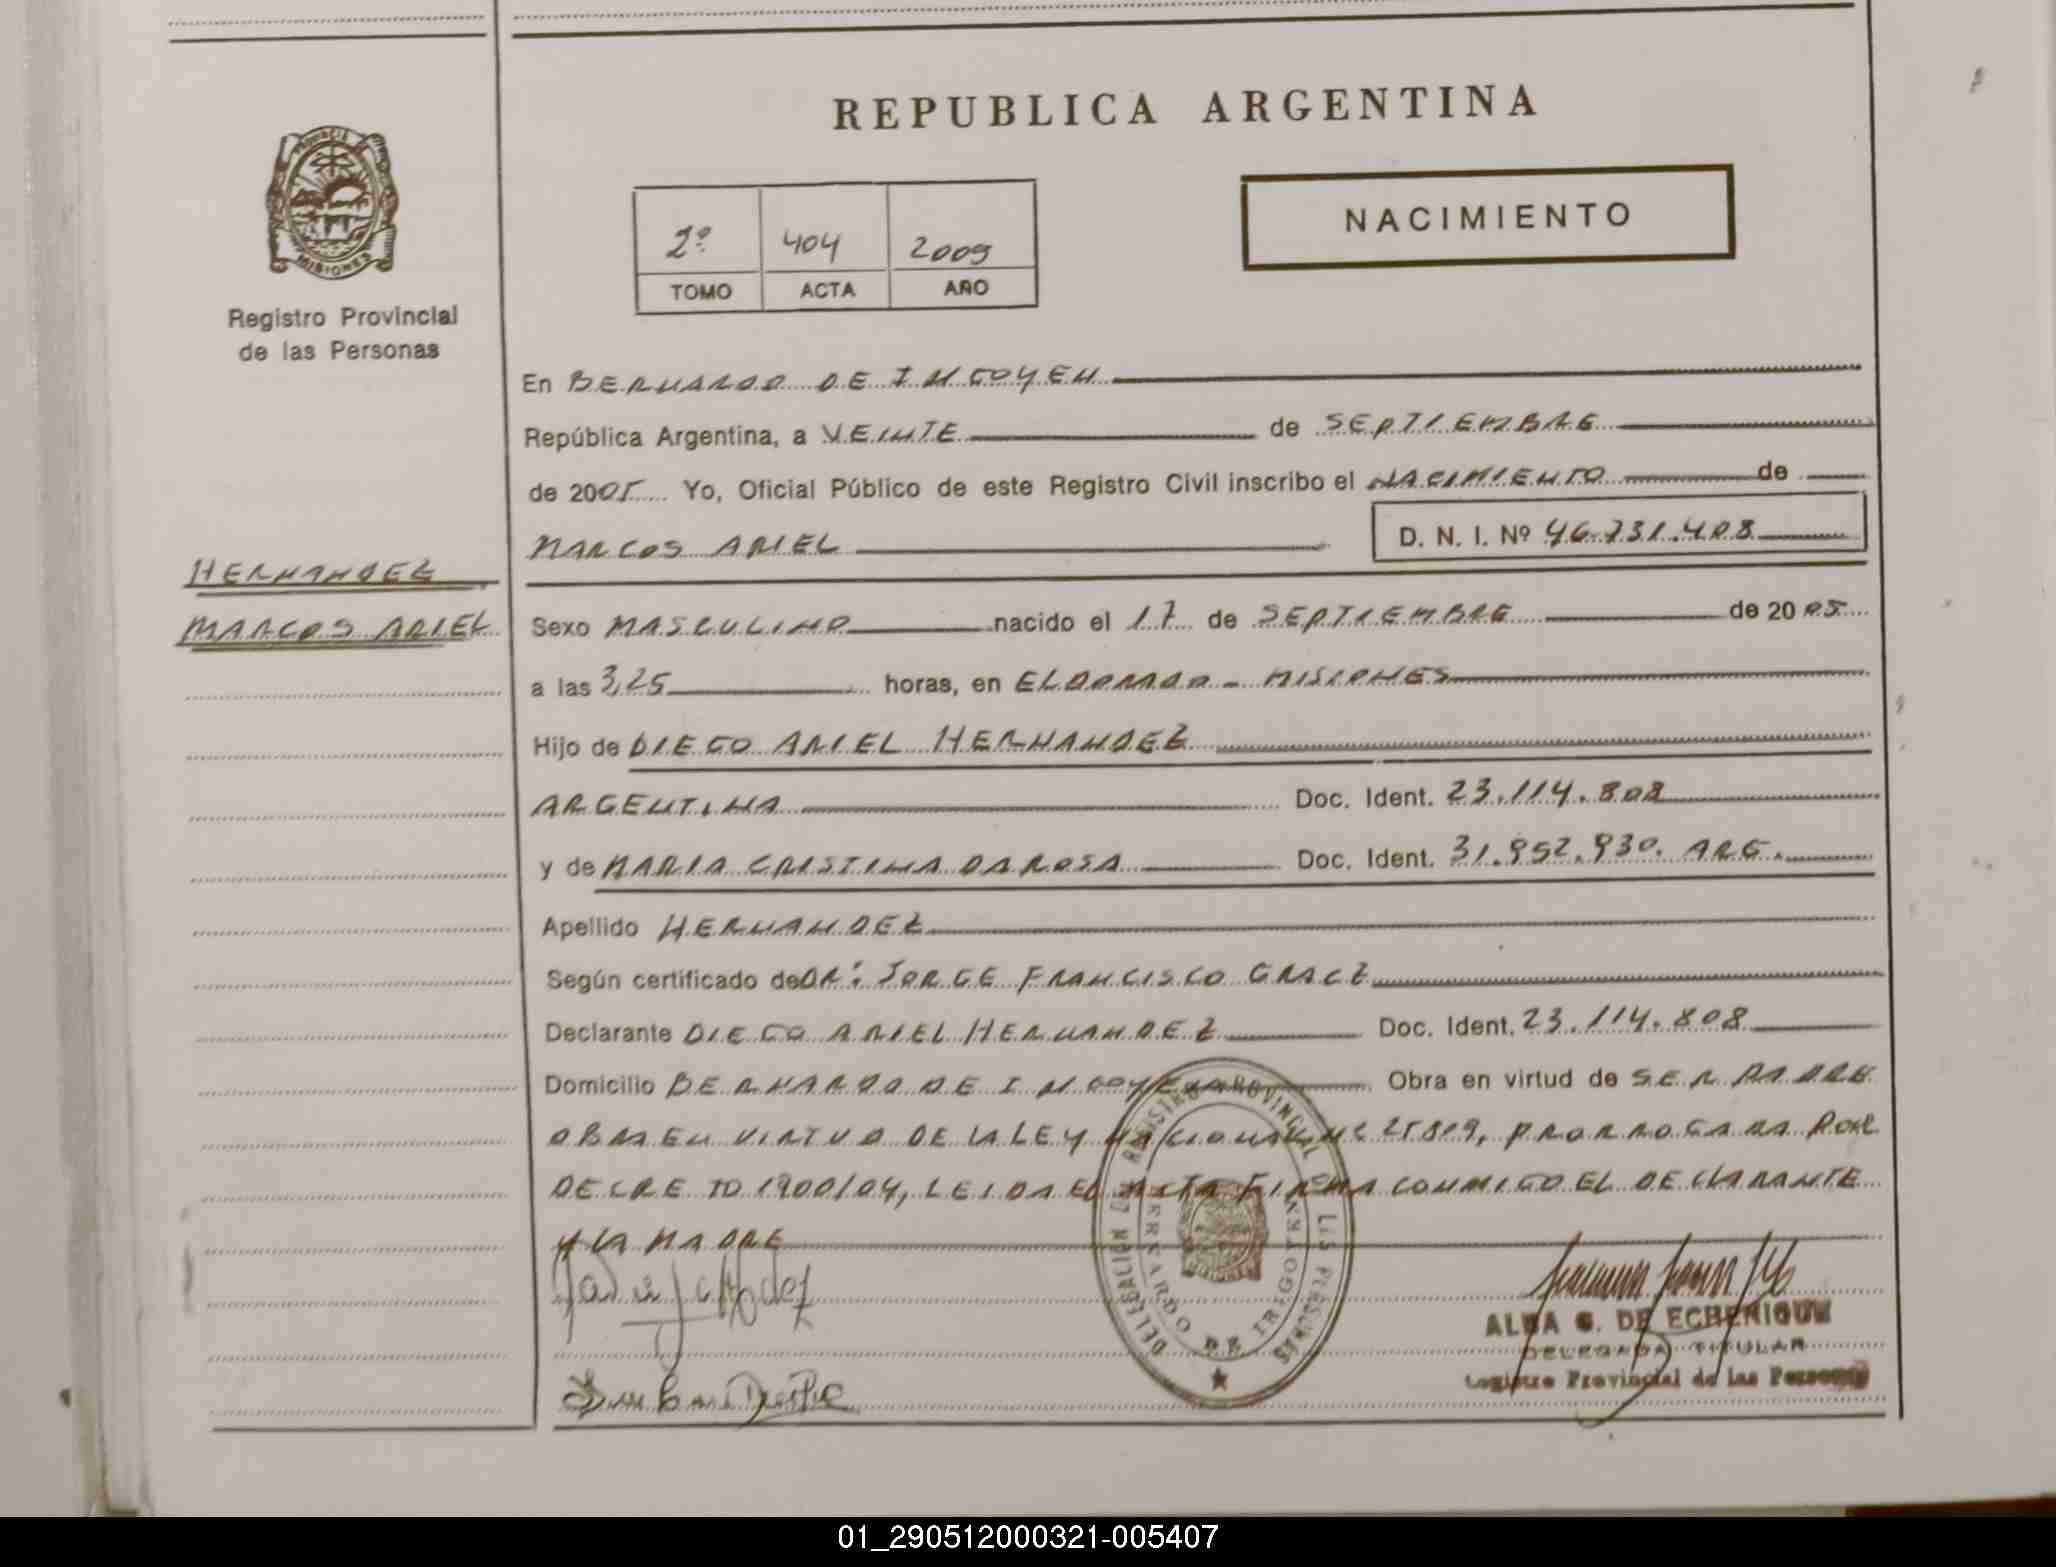 REPUBLICA ARGENTINA
PROVINCIA
MISIONES
Registro Provincial
de las Personas
NACIMIENTO
2º 404 2005
TOMO ACTA AÑO
En BERNARDO DE IRIGOYEN
República Argentina, a VEINTE de SEPTIEMBRE
de 2005 Yo, Oficial Público de este Registro Civil inscribo el NACIMIENTO de
MARCOS ARIEL D. N. I. Nº 46.731.408
HERNANDEZ
MARCOS ARIEL
Sexo MASCULINO nacido el 17 de SEPTIEMBRE de 2005
a las 3,25 horas, en ELDORADO - MISIONES
Hijo de DIEGO ARIEL HERNANDEZ
ARGENTINA Doc. Ident. 23.114.808
y de MARIA CRISTINA DA ROSA Doc. Ident. 31.952.930. ARG.
Apellido HERNANDEZ
Según certificado de DR: JORGE FRANCISCO
Declarante DIEGO ARIEL HERNANDEZ Doc. Ident. 23.114.808
Domicilio BERNARDO DE IRIGOYEN Obra en virtud de SER PADRE
OBRA EN VIRTUD DE LA LEY NACIONAL Nº 25809, PRORROGADA POR
DECRETO 1900/04, LEIDA EL ACTA FIRMA CONMIGO EL DECLARANTE
Y LA MADRE
DELEGACION REGISTRO PROVINCIAL DE LAS PERSONAS
BERNARDO DE IRIGOYEN
ALBA G. DE ECHENIQUE
DELEGADA TITULAR
Registro Provincial de las Personas
01_290512000321-005407